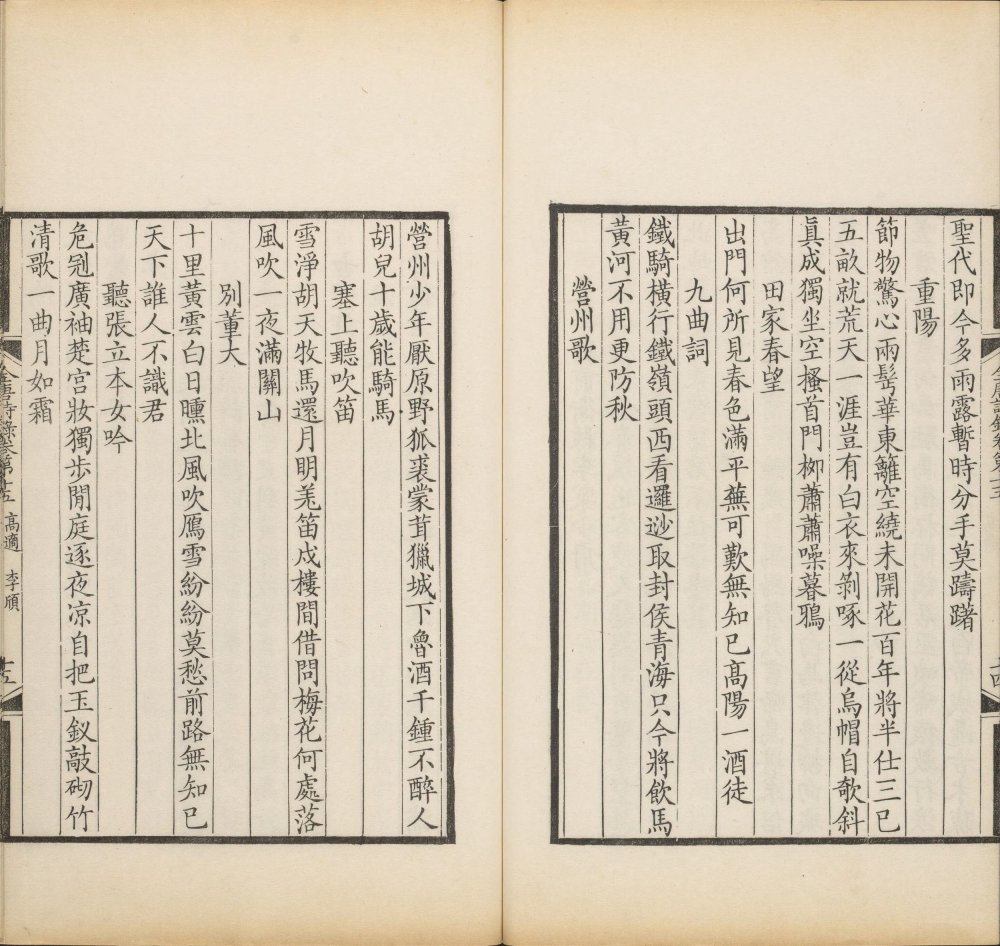 聖代即今多雨露暫時分手莫躊躇
重陽
節物驚心兩髩華東籬空繞未開花百年將半仕三已
五畝就荒天一涯豈有白衣來剝啄一從烏帽自欹斜
眞成獨坐空搔首門柳蕭蕭噪暮鴉
田家春望
出門何所見春色滿平蕪可歎無知已高陽一酒徒
九曲詞
鐵騎橫行鐵嶺頭西看邏逤取封侯青海只今將飲馬
黃河不用更防秋
營州歌
營州少年厭原野狐裘蒙茸獵城下魯酒千鍾不醉人
胡兒十歲能騎馬
塞上聽吹笛
雪淨胡天牧馬還月明羌笛戍樓間借問梅花何處落
風吹一夜滿關山
別董大
十里黃雲白日曛北風吹鴈雪紛紛莫愁前路無知已
天下誰人不識君
聽張立本女吟
危冠廣袖楚宮妝獨步閒庭逐夜凉自把玉釵敲砌竹
清歌一曲月如霜
全唐詩錄卷第十五 高適 李頎 十五